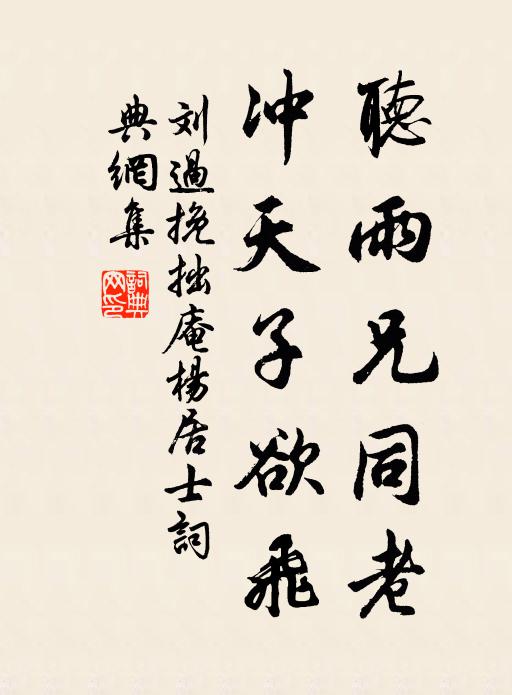 聽雨兄同老
冲天子欲飛
刘過挽拙庵楊居士詞
典網集
詞典網印